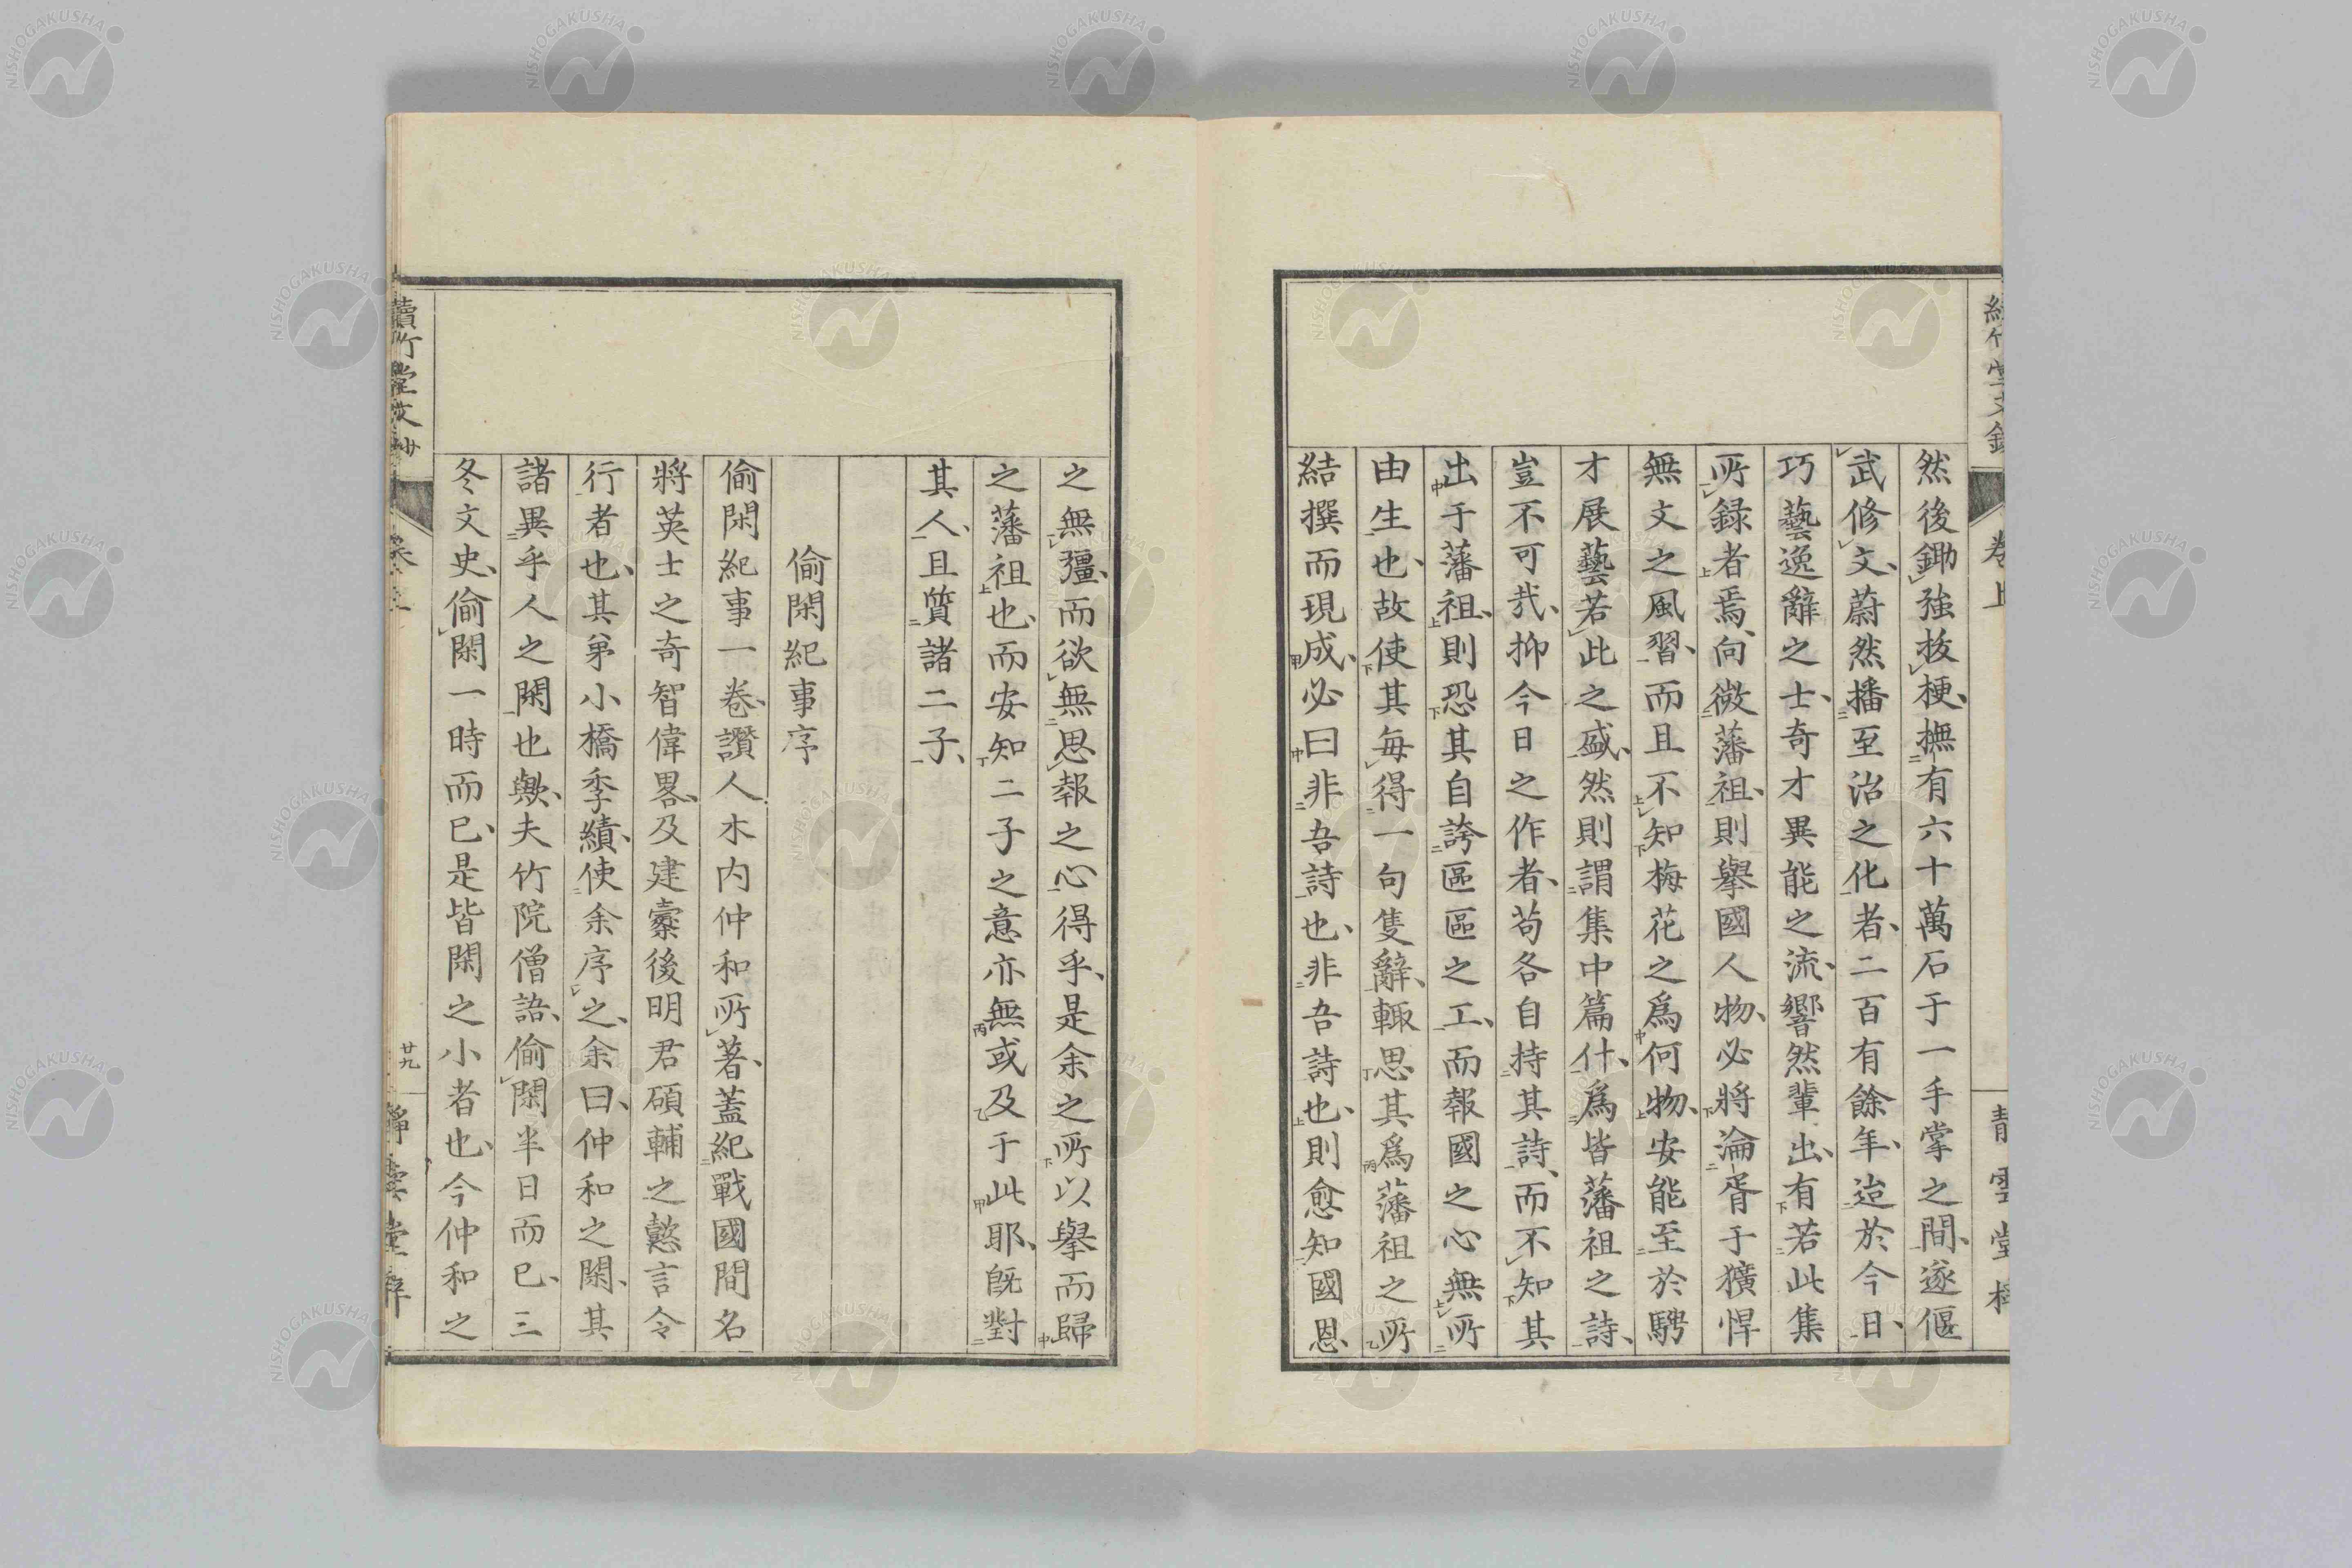 然後鋤強抜梗、撫有六十萬石于一手掌之間、遂偃
武修文、蔚然播至治之化者、二百有餘年、迨於今日、
巧藝逸辭之士、奇才異能之流、響然輩出、有若此集
所録者焉、向微藩祖、則擧國人物、必將淪胥于獷悍
無文之風習、而且不知梅花之爲何物、安能至於騁
才展藝若此之盛、然則謂集中篇什、爲皆藩祖之詩、
豈不可哉、抑今日之作者、苟各自持其詩、而不知其
出于藩祖、則恐其自誇區區之工、而報國之心無所
由生也、故使其毎得一句隻辭、輙思其爲藩祖之所
結撰而現成、必曰非吾詩也、非吾詩也、則愈知國恩
之無疆、而欲無思報之心得乎、是余之所以擧而歸
之藩祖也、而安知二子之意亦無或及于此耶、既對
其人、且質諸二子、
偷閑紀事序
偷閑紀事一卷、讃人木内仲和所著、蓋紀戰國間名
將英士之奇智偉畧、及建櫜後明君碩輔之懿言令
行者也、其弟小橋季績、使余序之、余曰、仲和之閑、其
諸異乎人之閑也歟、夫竹院僧語、偷閑半日而已、三
冬文史、偷閑一時而已、是皆閑之小者也、今仲和之
卷上
廿九